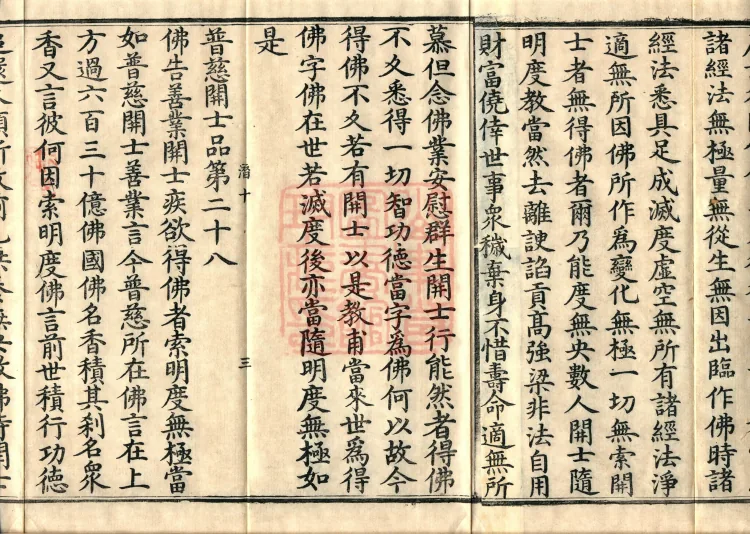 諸經法無極量無從生無因出臨作佛時諸
經法悉具足成滅度虛空無所有諸經法淨
適無所因佛所作為變化無極一切無索開
士者無得佛者爾乃能度無央數人開士隨
明度教當然去離諛諂貢高強梁非法自用
財富僥倖世事衆穢棄身不惜壽命適無所
慕但念佛業安慰群生開士行能然者得佛
不久悉得一切智功德當字為佛何以故今
得佛不久若有開士以是教甫當來世為得
佛字佛在世若滅度後亦當隨明度無極如
是
潛十
三
普慈開士品第二十八
佛告善業開士疾欲得佛者索明度無極當
如普慈開士善業言今普慈所在佛言在上
方過六百三十億佛國佛名香積其刹名衆
香又言彼何因索明度佛言前世積行功德